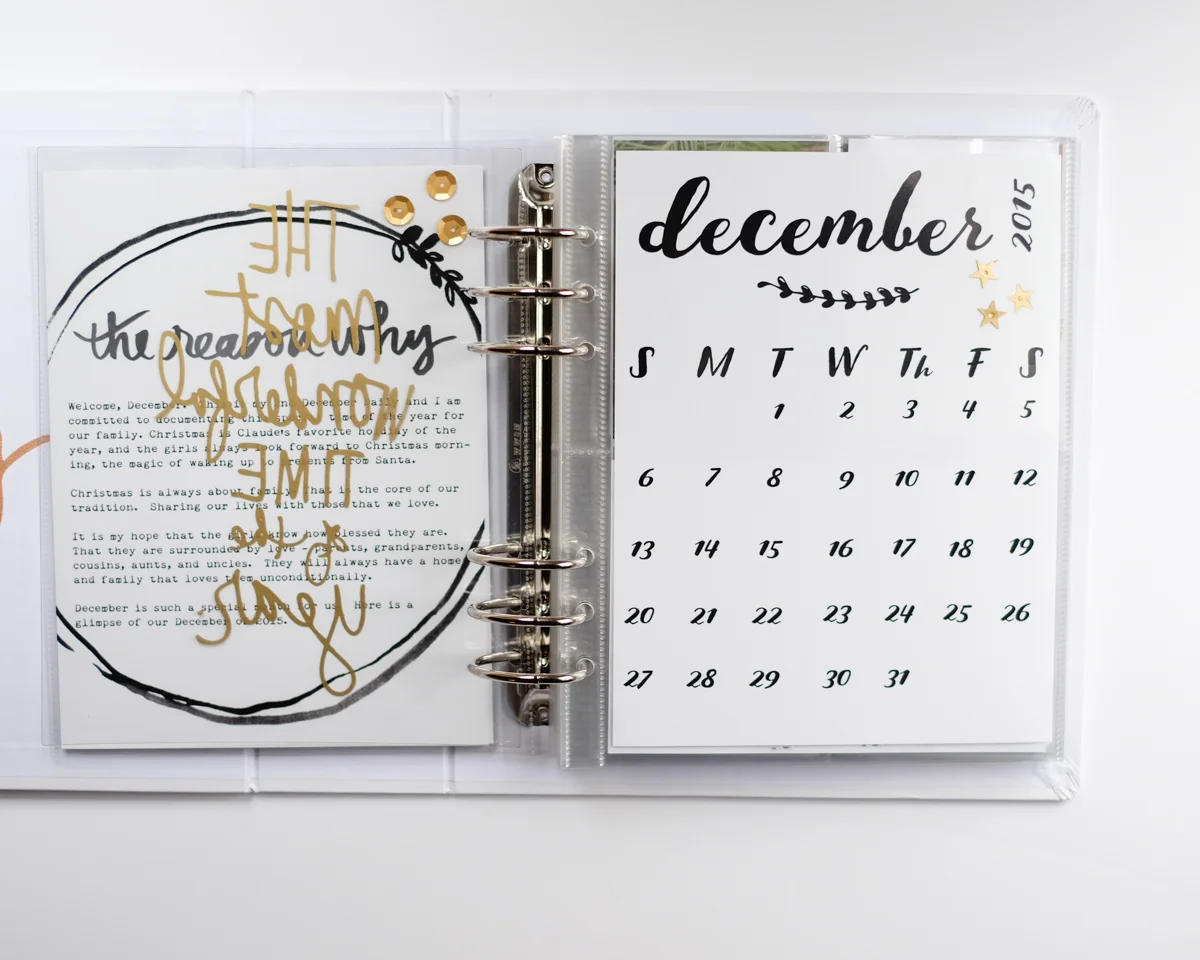 THE
most
wonderful
TIME
of the
year
the reason why
Welcome, December. This is my 2nd December Daily and I am
committed to documenting this special time of the year for
our family. Christmas is Claude's favorite holiday of the
year, and the girls always look forward to Christmas morn-
ing, the magic of waking up to presents from Santa.
Christmas is always about family. That is the core of our
tradition. Sharing our lives with those that we love.
It is my hope that the girls know how blessed they are.
That they are surrounded by love - parents, grandparents,
cousins, aunts, and uncles. They will always have a home
and family that loves them unconditionally.
December is such a special month for us. Here is a
glimpse of our December of 2015.
december 2015
S M T W Th F S
1 2 3 4 5
6 7 8 9 10 11 12
13 14 15 16 17 18 19
20 21 22 23 24 25 26
27 28 29 30 31